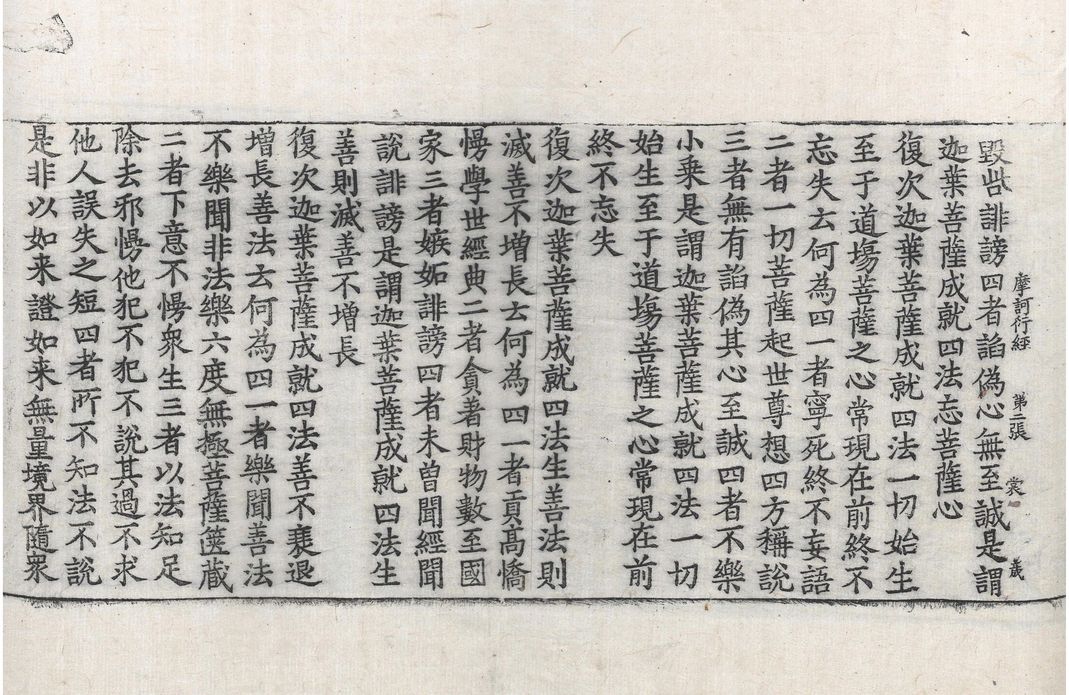 摩訶衍經 第三張 裳 歲
毀呰誹謗四者諂偽心無至誠是謂
迦葉菩薩成就四法忘菩薩心
復次迦葉菩薩成就四法一切始生
至于道塲菩薩之心常現在前終不
忘失云何為四一者寧死終不妄語
二者一切菩薩起世尊想四方稱說
三者無有諂偽其心至誠四者不樂
小乗是謂迦葉菩薩成就四法一切
始生至于道塲菩薩之心常現在前
終不忘失
復次迦葉菩薩成就四法生善法則
滅善不增長云何為四一者貢髙憍
慢學世經典二者貪著財物數至國
家三者嫉妬誹謗四者未曾聞經聞
說誹謗是謂迦葉菩薩成就四法生
善則滅善不增長
復次迦葉菩薩成就四法善不衰退
增長善法云何為四一者樂聞善法
不樂聞非法樂六度無極菩薩篋藏
二者下意不慢衆生三者以法知足
除去邪慢他犯不犯不說其過不求
他人誤失之短四者所不知法不說
是非以如来證如来無量境界隨衆